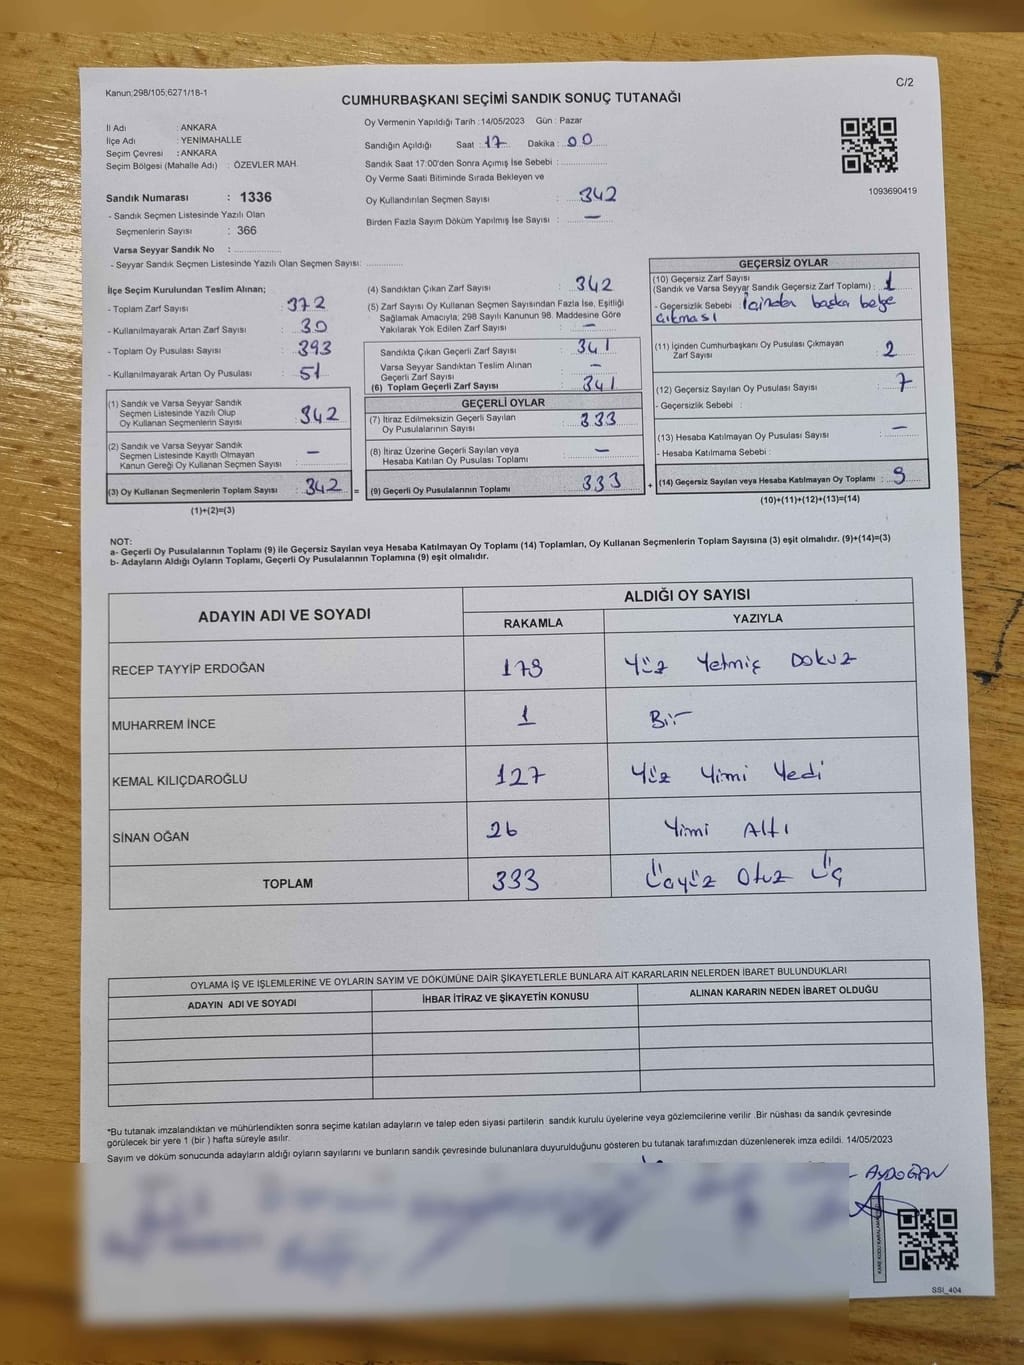 Kanun:298/105;6271/18-1
C/2
CUMHURBAŞKANI SEÇİMİ SANDIK SONUÇ TUTANAĞI
İl Adı : ANKARA
İlçe Adı : YENİMAHALLE
Seçim Çevresi : ANKARA
Seçim Bölgesi (Mahalle Adı) : ÖZEVLER MAH.
Sandık Numarası : 1336
- Sandık Seçmen Listesinde Yazılı Olan
Seçmenlerin Sayısı : 366
Varsa Seyyar Sandık No :
- Seyyar Sandık Seçmen Listesinde Yazılı Olan Seçmen Sayısı:
Oy Vermenin Yapıldığı Tarih :14/05/2023 Gün : Pazar
Sandığın Açıldığı Saat : 17 Dakika : 00
Sandık Saat 17:00'den Sonra Açımış İse Sebebi :
Oy Verme Saati Bitiminde Sırada Bekleyen ve
Oy Kullandırılan Seçmen Sayısı : 342
Birden Fazla Sayım Döküm Yapılmış İse Sayısı : —
1093690419
İlçe Seçim Kurulundan Teslim Alınan;
- Toplam Zarf Sayısı : 372
- Kullanılmayarak Artan Zarf Sayısı : 30
- Toplam Oy Pusulası Sayısı : 393
- Kullanılmayarak Artan Oy Pusulası : 51
(1) Sandık ve Varsa Seyyar Sandık
Seçmen Listesinde Yazılı Olup
Oy Kullanan Seçmenlerin Sayısı : 342
(2) Sandık ve Varsa Seyyar Sandık
Seçmen Listesinde Kayıtlı Olmayan
Kanun Gereği Oy Kullanan Seçmen Sayısı : —
(3) Oy Kullanan Seçmenlerin Toplam Sayısı : 342 =
(1)+(2)=(3)
(4) Sandıktan Çıkan Zarf Sayısı : 342
(5) Zarf Sayısı Oy Kullanan Seçmen Sayısından Fazla İse, Eşitliği
Sağlamak Amacıyla; 298 Sayılı Kanunun 98. Maddesine Göre
Yakılarak Yok Edilen Zarf Sayısı : —
Sandıkta Çıkan Geçerli Zarf Sayısı : 341
Varsa Seyyar Sandıktan Teslim Alınan
Geçerli Zarf Sayısı : —
(6) Toplam Geçerli Zarf Sayısı : 341
GEÇERLİ OYLAR
(7) İtiraz Edilmeksizin Geçerli Sayılan
Oy Pusulalarının Sayısı : 333
(8) İtiraz Üzerine Geçerli Sayılan veya
Hesaba Katılan Oy Pusulası Toplamı : —
(9) Geçerli Oy Pusulalarının Toplamı : 333 +
GEÇERSİZ OYLAR
(10) Geçersiz Zarf Sayısı
(Sandık ve Varsa Seyyar Sandık Geçersiz Zarf Toplamı) : 1
- Geçersizlik Sebebi : İçinden başka belge
çıkması
(11) İçinden Cumhurbaşkanı Oy Pusulası Çıkmayan
Zarf Sayısı : 2
(12) Geçersiz Sayılan Oy Pusulası Sayısı : 7
- Geçersizlik Sebebi :
(13) Hesaba Katılmayan Oy Pusulası Sayısı : —
- Hesaba Katılmama Sebebi :
(14) Geçersiz Sayılan veya Hesaba Katılmayan Oy Toplamı : 9
(10)+(11)+(12)+(13)=(14)
NOT:
a- Geçerli Oy Pusulalarının Toplamı (9) ile Geçersiz Sayılan veya Hesaba Katılmayan Oy Toplamı (14) Toplamları, Oy Kullanan Seçmenlerin Toplam Sayısına (3) eşit olmalıdır. (9)+(14)=(3)
b- Adayların Aldığı Oyların Toplamı, Geçerli Oy Pusulalarının Toplamına (9) eşit olmalıdır.
ADAYIN ADI VE SOYADI ALDIĞI OY SAYISI
RAKAMLA YAZIYLA
RECEP TAYYİP ERDOĞAN 179 Yüz Yetmiş Dokuz
MUHARREM İNCE 1 Bir
KEMAL KILIÇDAROĞLU 127 Yüz Yimi Yedi
SİNAN OĞAN 26 Yimi Altı
TOPLAM 333 Üçyüz Otuz Üç
OYLAMA İŞ VE İŞLEMLERİNE VE OYLARIN SAYIM VE DÖKÜMÜNE DAİR ŞİKAYETLERLE BUNLARA AİT KARARLARIN NELERDEN İBARET BULUNDUKLARI
ADAYIN ADI VE SOYADI İHBAR İTİRAZ VE ŞİKAYETİN KONUSU ALINAN KARARIN NEDEN İBARET OLDUĞU
*Bu tutanak imzalandıktan ve mühürlendikten sonra seçime katılan adayların ve talep eden siyasi partilerin sandık kurulu üyelerine veya gözlemcilerine verilir .Bir nüshası da sandık çevresinde
görülecek bir yere 1 (bir ) hafta süreyle asılır.
Sayım ve döküm sonucunda adayların aldığı oyların sayılarını ve bunların sandık çevresinde bulunanlara duyurulduğunu gösteren bu tutanak tarafımızdan düzenlenerek imza edildi. 14/05/2023
AYDOĞAN
SSI_404